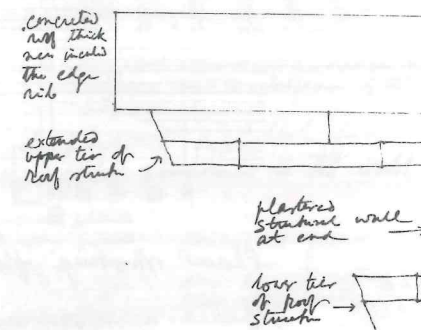 concreted
roof thick
ness includ
the edge
rib
extended
upper tier of
roof struktn
plastered
structural wall
at end
lower tier
of roof
structn